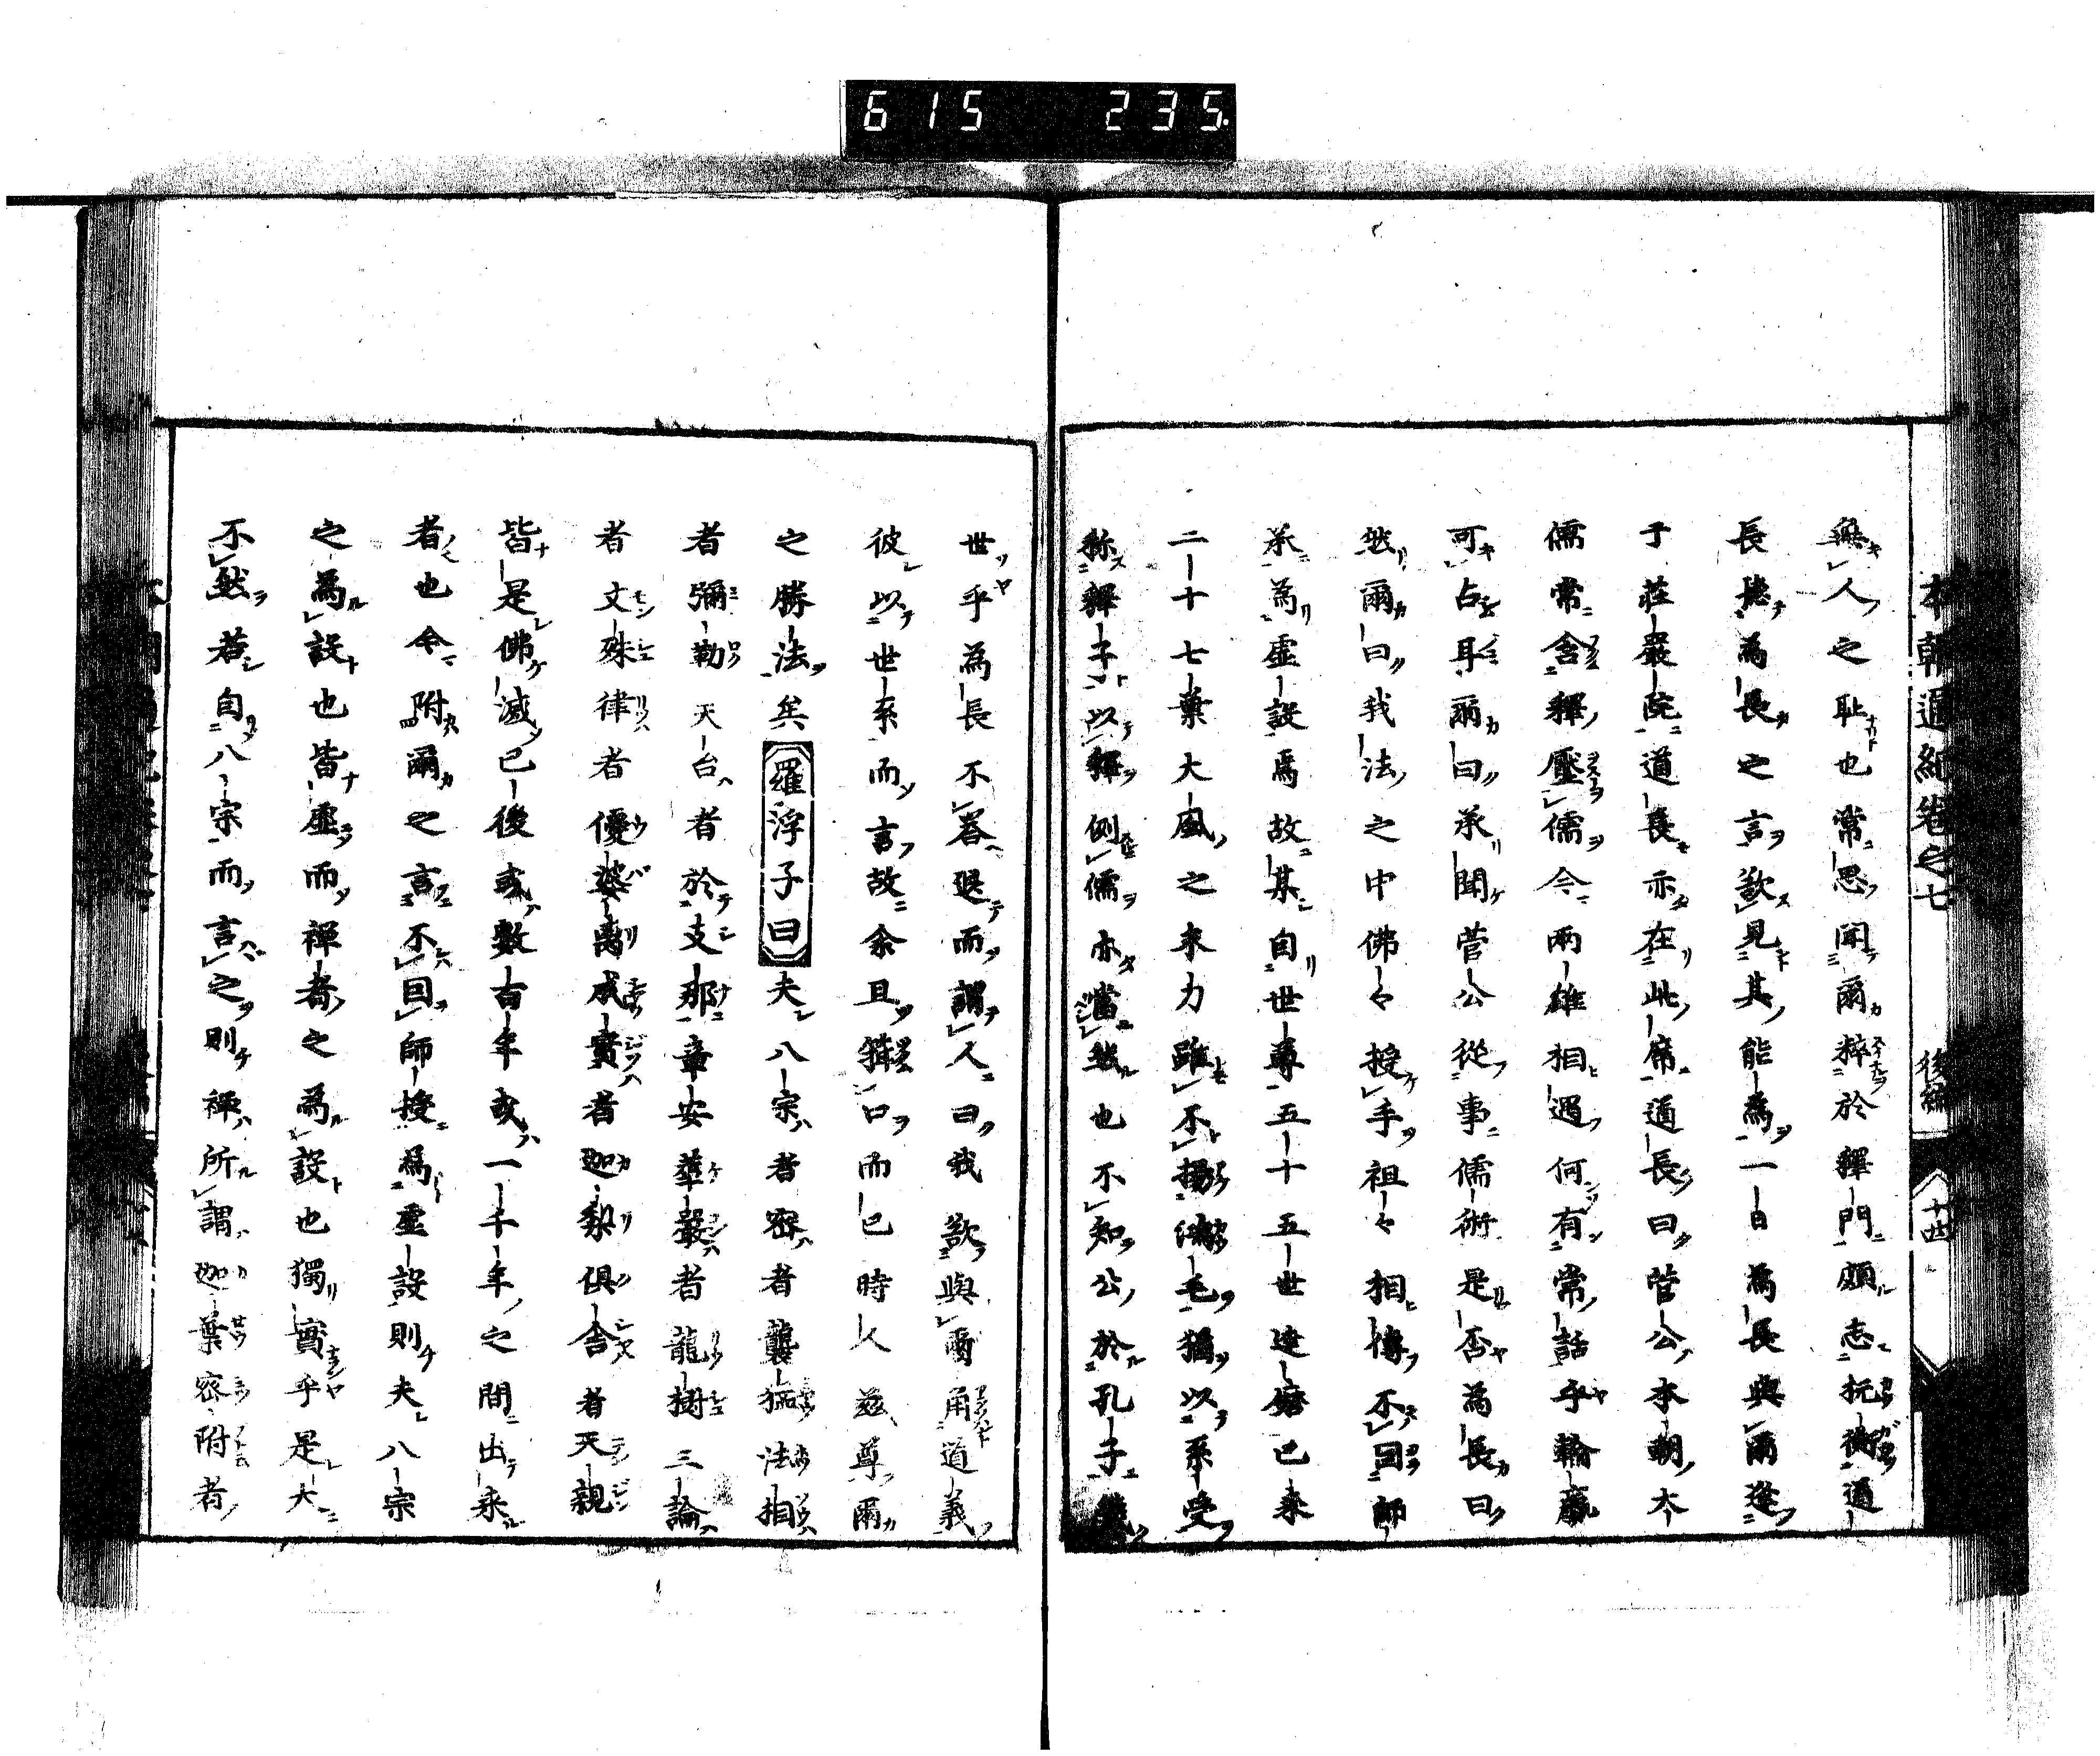 615 235
本朝通紀卷之七 後編 十四
無人之耻也常思聞爾粹於釋門頗志抗衡道
長聴為長之言欲見其能為一日為長與爾逢
于莊嚴院道長亦在此席道長曰菅公本朝大
儒常含釋壓儒今兩雄相遇何有常話乎輸贏
可占耳爾曰承聞菅公從事儒術是否為長曰
然爾曰我法之中佛々授手祖々相傳不囙師
承為虛設焉故某自世尊五十五世達磨已來
二十七葉大風之末力雖不揚鴻毛猶以系受
称釋子以釋例儒亦當然也不知公於孔子幾
世乎為長不答退而謂人曰我欲與爾角道義
彼以世系而言故余且箝口而已時人茲尊爾
之勝法矣羅浮子曰夫八宗者密者龔猛法相
者彌勒天台者於支那章安華嚴者龍樹三論
者文殊律者優婆離成實者迦梨俱舍者天親
皆是佛滅已後或數百年或一千年之間出来
者也今附爾之言不囙師授為虛設則夫八宗
之為設也皆虛而禪者之為設也獨實乎是大
不然若自八宗而言之則禪所謂迦葉密附者